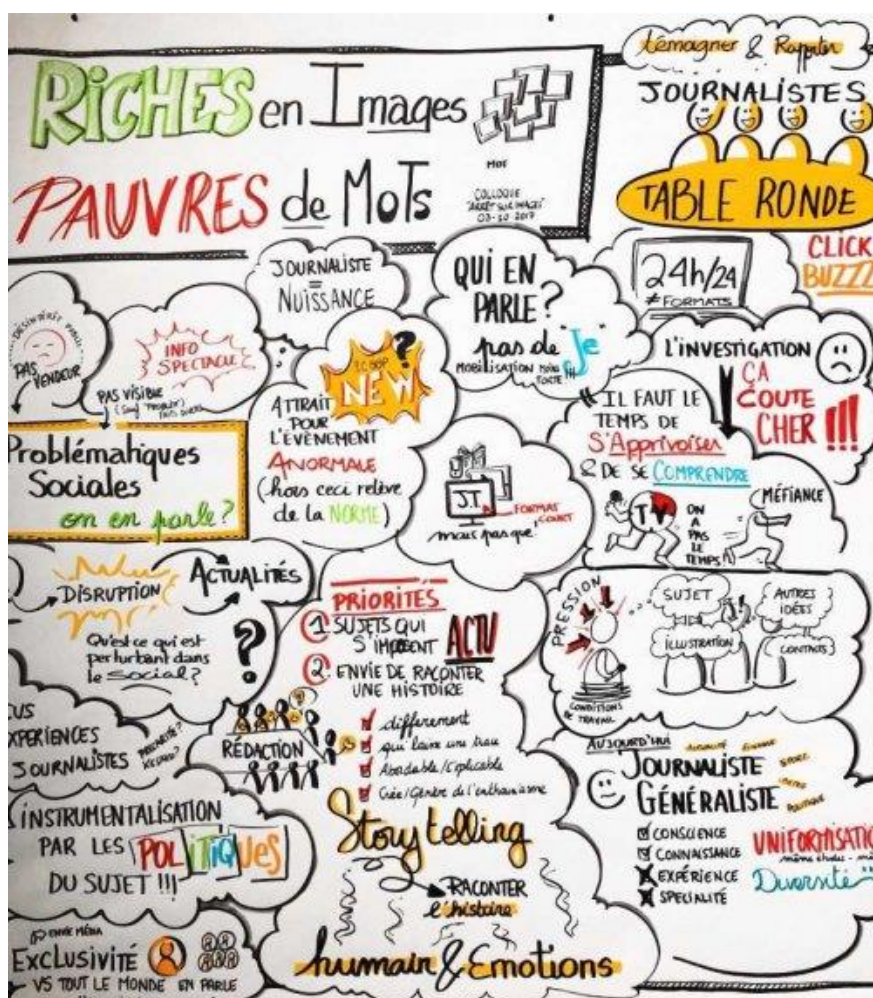 RICHES en Images
PAUVRES de MoTs
MOF
COLLOQUE
"ARRÊT SUR IMAGES"
03-10 2017
témagner & Rapporter
JOURNALISTES
TABLE RONDE
CLICK
BUZZZ
24h/24
≠ FORMATS
JOURNALISTE
=
NUISSANCE
QUI EN
PARLE?
pas de "Je"
MOBILISATION
L'INVESTIGATION
ÇA
COUTE
CHER !!!
DÉSINTÉRÊT PUBLIC
PAS
VENDEUR
INFO
SPECTACLE
PAS VISIBLE
Problématiques
Sociales
on en parle?
SCOOP
NEW?
ATTRAIT
POUR
L'EVÈNEMENT
ANORMALE
(hors ceci relève
de la NORME)
J.T.
FORMAT
COURT
mais pas que!
"IL FAUT LE
TEMPS DE
S'Apprivoiser
& DE SE COMPRENDRE
TV
ON
A
PAS
LE
TEMPS!
MÉFIANCE
DISRUPTION
ACTUALITÉS
Qu'est ce qui est
perturbant dans
le Social?
?
PRIORITÉS
1. SUJETS QUI
S'IMPOSENT ACTU
2. ENVIE DE RACONTER
UNE HISTOIRE
différement
qui laisse une trace
Abordable/Explicable
Crée/Génère de l'enthousiasme
RÉDACTION
PRESSION
CONDITIONS
DE TRAVAIL
SUJET
ILLUSTRATION
AUTRES
IDÉES
CONTACTS
XPERIENCES
JOURNALISTES
PRÉCARITÉ?
INSTRUMENTALISATION
PAR LES POLITIQUES
DU SUJET !!!
Storytelling
RACONTER
l'histoire
humain & Emotions
AUJOURD'HUI
JOURNALISTE
GÉNÉRALISTE
SPORT
POLITIQUE
CONSCIENCE
CONNAISSANCE
EXPÉRIENCE
SPECIALITÉ
UNIFORMISATIO
Diversité
ENVIE MÉDIA
EXCLUSIVITÉ
VS TOUT LE MONDE EN PARLE